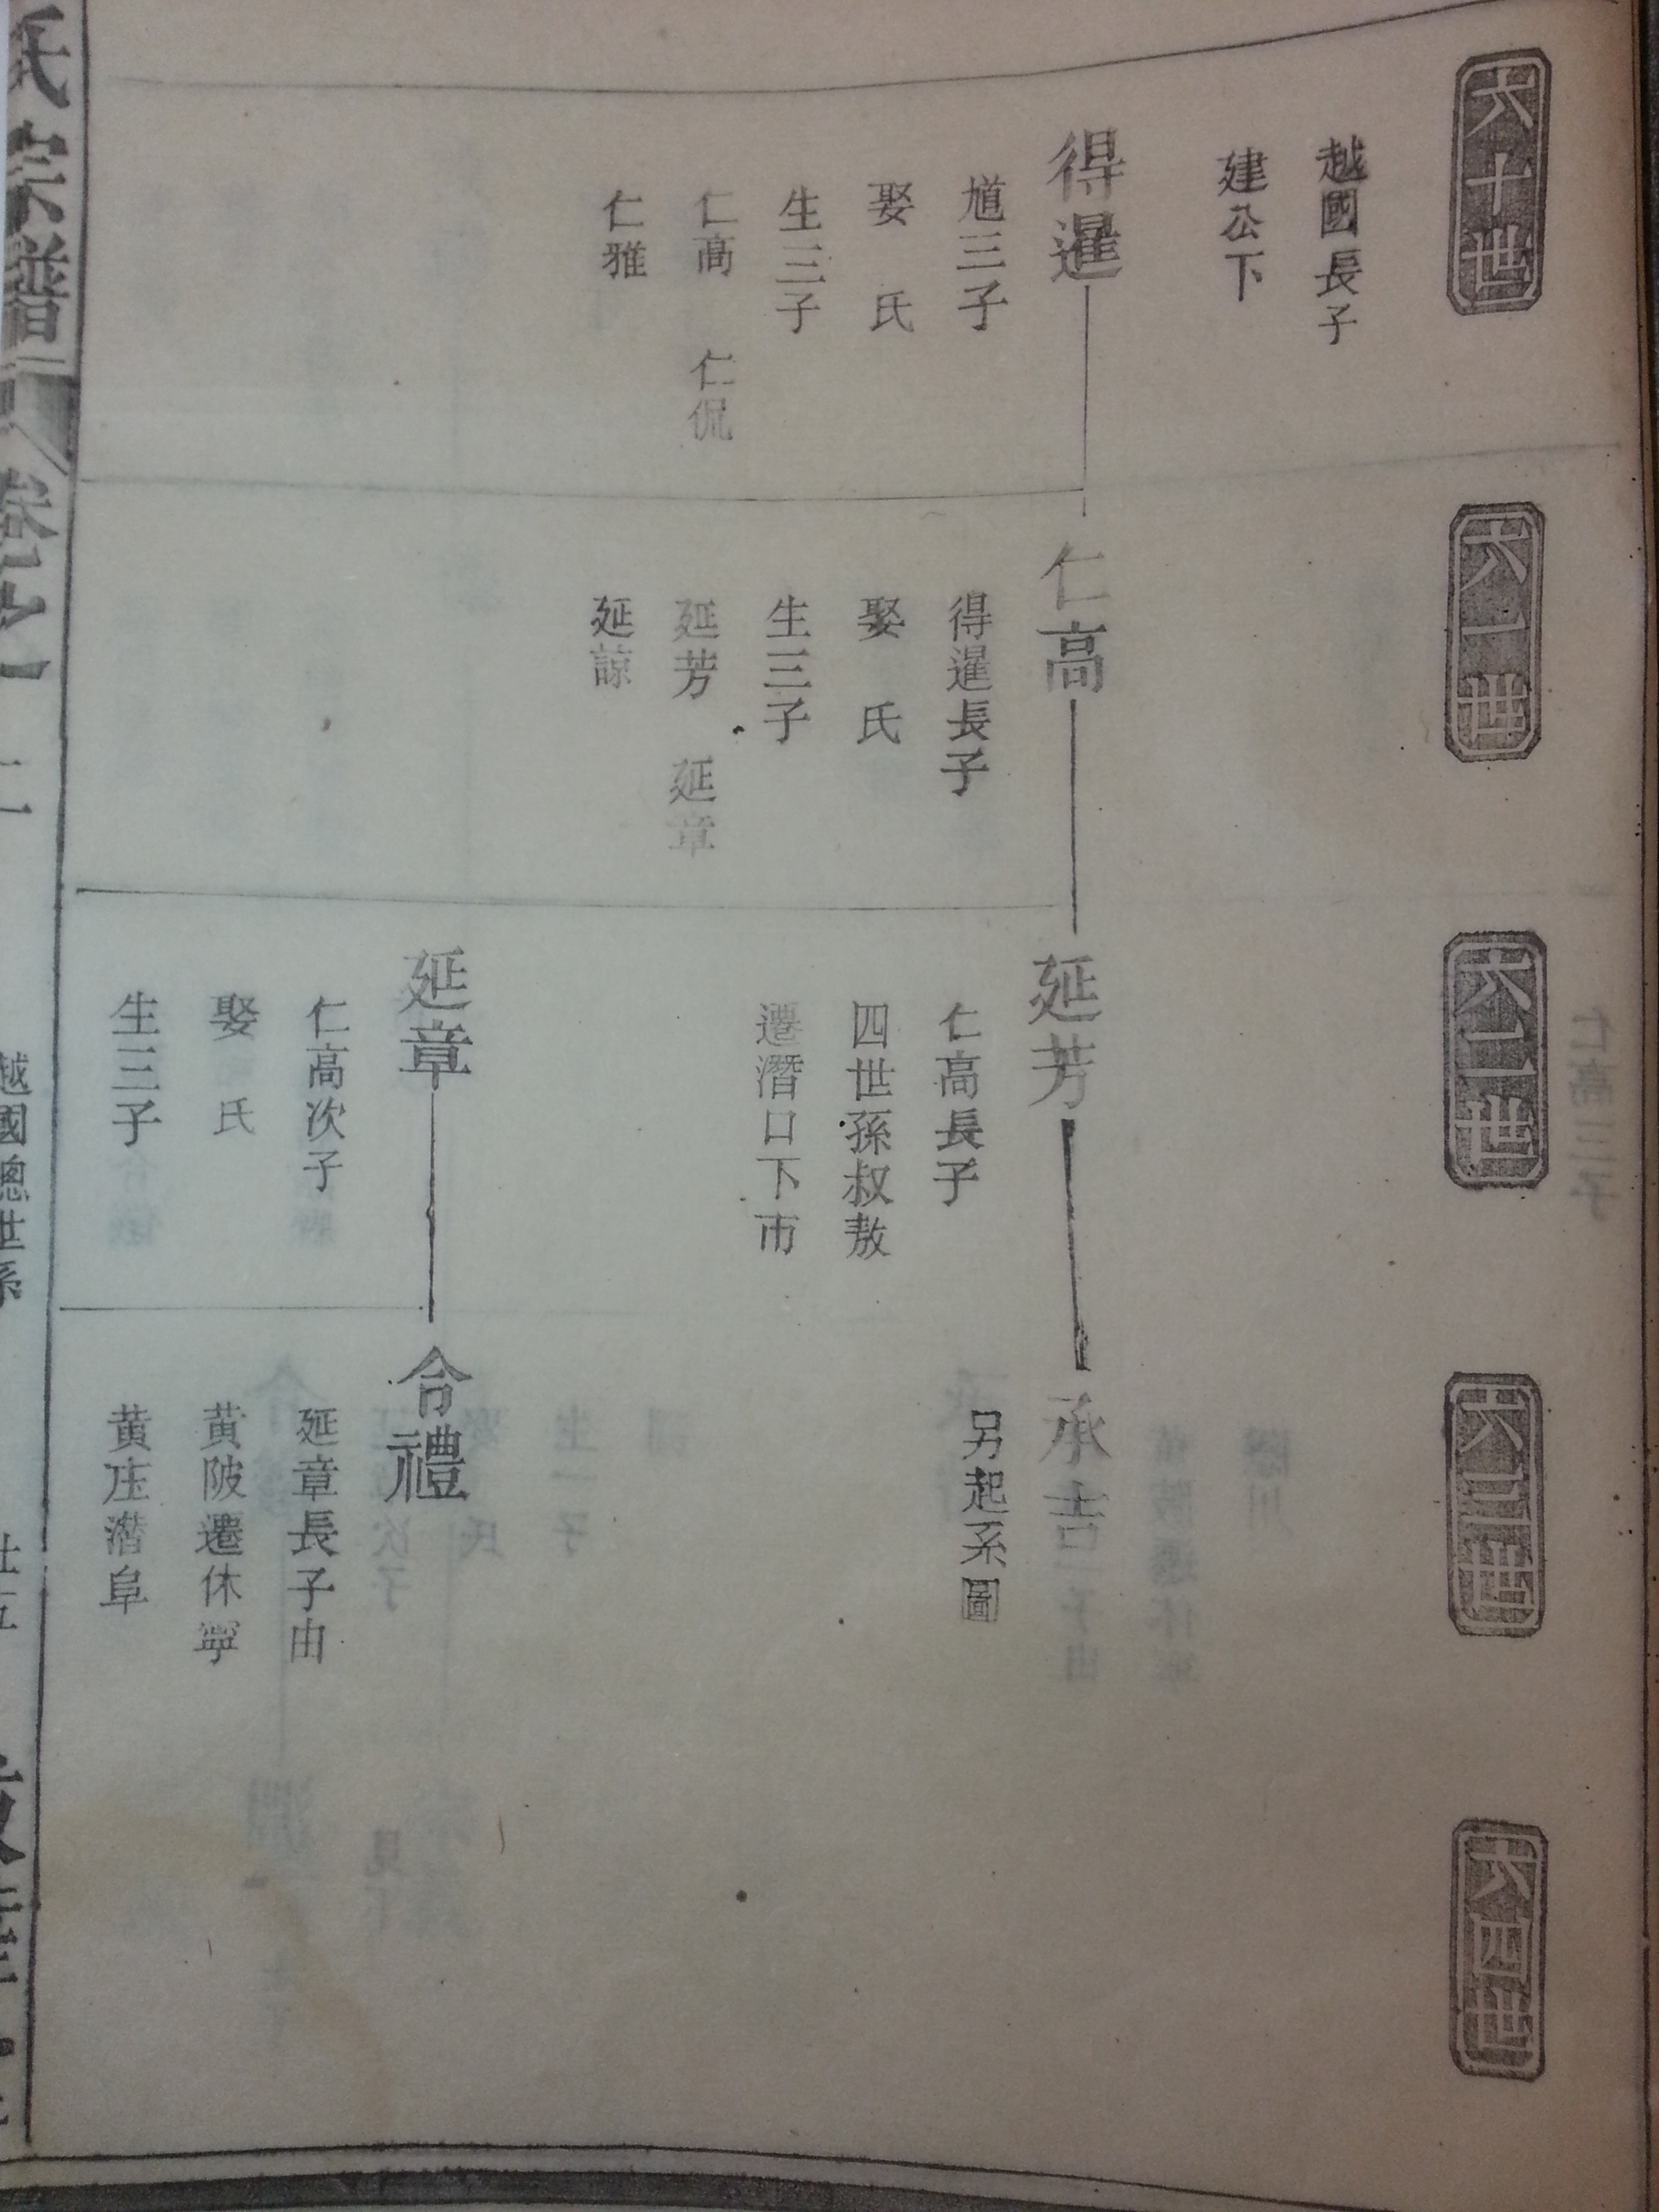 六十世
越國長子
建公下
得暹
馗三子
娶 氏
生三子
仁高 仁侃
仁雅
六一世
仁高
得暹長子
娶 氏
生三子
延芳 延章
延諒
六二世
延芳
仁高長子
四世孫叔敖
遷潛口下市
延章
仁高次子
娶 氏
生三子
六三世
承吉
另起系圖
令禮
延章長子由
黄陂遷休寧
黄庄潛阜
六四世
氏宗譜
卷之一
越國總世系